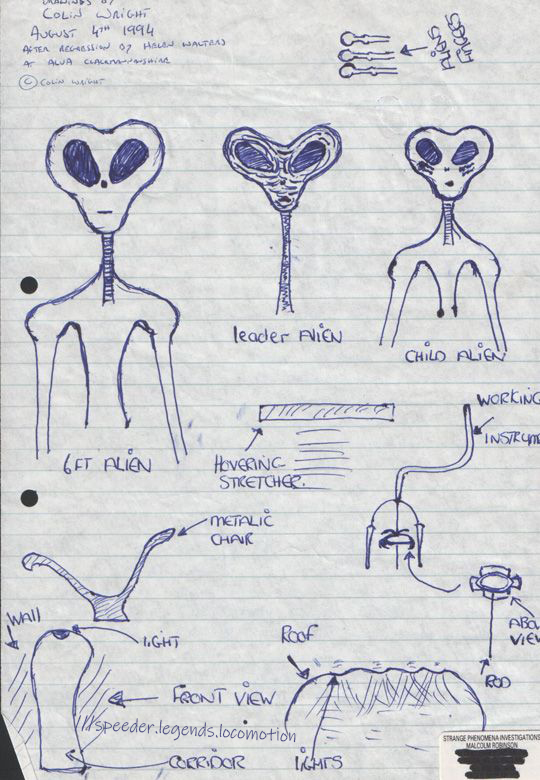 DRAWINGS BY
COLIN WRIGHT
AUGUST 4TH 1994
AFTER REGRESSION BY HELEN WALTERS
AT ALVA CLACKMANNANSHIRE
© COLIN WRIGHT
leader ALIEN
CHILD ALIEN
6FT ALIEN
HOVERING
STRETCHER.
WORKING
INSTRUM
METALIC
CHAIR
WALL
LIGHT
FRONT VIEW
CORRIDOR
ROOF
LIGHTS
ABO
VIEW
ROD
//speeder.legends.locomotion
STRANGE PHENOMENA INVESTIGATIONS
MALCOLM ROBINSON